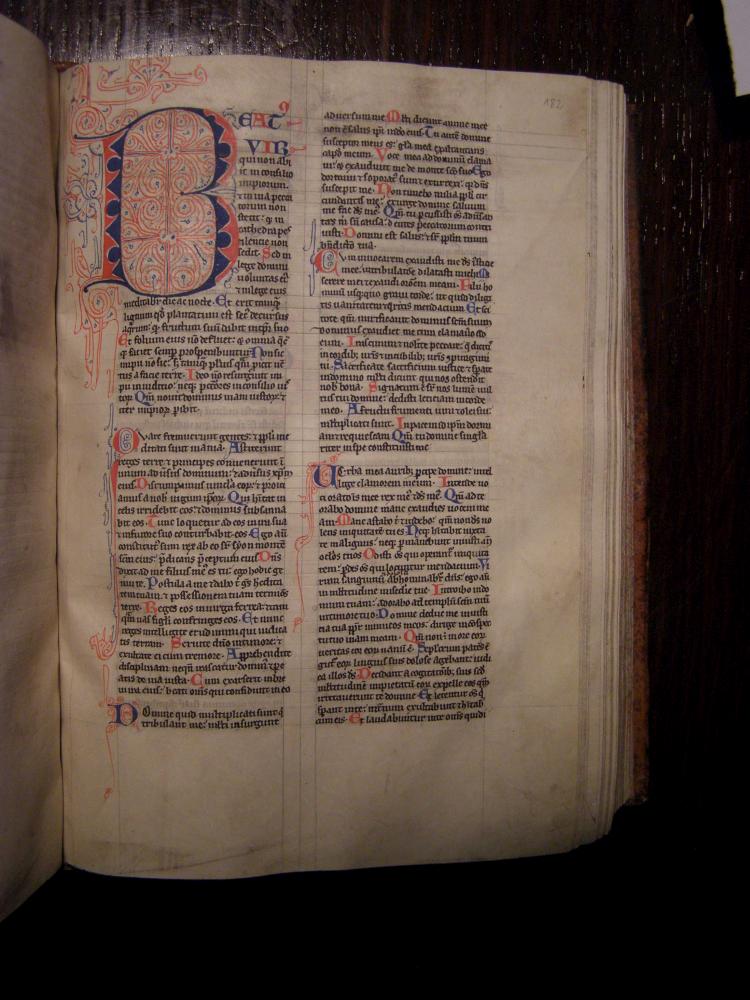 182
BEAT9
VIR
qui non abi
it in consilio
impiorum.
torum non
stetit: ⁊ in
cathedra pes
tilencie non
sedit. Sed in
lege domini
uoluntas ei9
meditabr die ac nocte. Et erit tamq̄
lignum qd̄ plantatum est secꝰ decursus
aq̄rum: q̄ fructum suū dabit in tp̄r suo
Et folium eius nō defluet: ⁊ omnia q̄
Non sic
impii nō sic:
Ideo nō resurgunt im
pii in iudicio: neq; pctōres in consilio
Qm̄ nouit dominus uiam iustoꝝ: ⁊
iter impioꝝ pibit.
Quare fremuerunt gentes: ⁊ ppl̄i me
ditati sunt inania. Astiterunt
reges terre ⁊ principes conuenerunt ī
unum aduersus dominum: ⁊ aduersus xp̄m
eius. Disrumpamus uincla eoꝝ: ⁊ proici
amus a nob̄ iugum ip̄oꝝ. Qui hitat in
celis irridebit eos: ⁊ dominus subsanna
bit eos. Tunc loquetur ad eos in ira sua
⁊ in furore suo conturbabit eos. Ego aū
constitutꝰ sum rex ab eo sr̄ syon montē
scm̄ eius: p̄dicans p̄ceptum eius. Dn̄s
dixit ad me filius mē es tu: ego hodie ge
nui te. Postula a me ⁊ dabo t̄ gs̄ hedita
tem tuam: ⁊ possessionem tuam terminos
terre. Reges eos in uirga ferrea: ⁊ tam
qm̄ uas figli confringes eos. Et nunc
reges intelligite erudimini qui iudica
tis terram. Seruite dn̄o in timore: ⁊
exultate ei cum tremore. Apprehendite
disciplinam: neqn̄ irascatur dominꝰ ⁊ pe
atis de uia iusta. Cum exarserit in bre
ui ira eius: beati oms̄ qui confidunt in eo
Domine quid multiplicati sunt q̄
tribulant me: multi insurgunt
aduersum me. Multi dicunt anime mee
non ē salus ipi in deo eius. Tu autē domine
susceptor meus es: gl̄a mea ⁊ exaltans
caput meum. Voce mea ad dominū clama
ui: ⁊ exaudiuit me de monte sc̄o suo. Ego
dormiui ⁊ soporatꝰ sum: ⁊ exurrexi: q̄ dn̄s
suscepit me. Non timebo milia ppl̄i cir
cundantis me: exurge domine saluum
me fac dš mē. Qm̄ tu pcussisti oš aduersan
tes m̄ sn̄ causa: dentes peccatorum contri
uisti. Domini est salus: ⁊ sr̄ ppl̄m tuum
bn̄dictio tua.
Cum inuocarem exaudisti me dš iusticie
mee: in tribulatōe dilatasti michi. Mi
serere mei: ⁊ exaudi orōem meam. Filii ho
minū usq;quo graui corde: ut quid diligi
tis uanitatem ⁊ q̄ritis mendacium. Et sci
tote qm̄ mirificauit dominus scm̄ suum
dominus exaudiet me cum clamauero ad
eum. Irascimini ⁊ nolite peccare: q̄ dicitis
in cordib; ur̄is in cubilib; ur̄is ⁊pungimi
ni. Sacrificate sacrificium iusticie ⁊ spate
in domino multi dicunt qui nos ostendit
nob̄ bona. Signatum ē sr̄ nos lumē uul
tus tui domine: dedisti leticiam in corde
meo. A fructu frumenti uini ⁊ olei sui:
multiplicati sunt. In pace in id ipm̄ dormi
am ⁊ requiescam. Qm̄ tu domine singlari
ter in spe constituisti me
Uerba mea aurib; pcipe domine: intel
lige clamorem meum. Intende uo
ci orationis mee rex mē ⁊ dš mē. Qm̄ ad te
orabo domine mane exaudies uocem me
am. Mane astabo t̄ ⁊ uidebo: qm̄ non dš uo
lens iniquitatē tu es. Neq; habitabit iuxta
te malignus: neq; pmanebunt iniusti an̄
oclōs tuos. Odisti oš qui operant̄ iniquita
tem: pdes oš qui loquunt̄ mendacium. Vi
rum sanguinū ⁊ dolosum abhominabit̄ dn̄s: ego aū
in multitudine misedie tue. Introibo in do
mum tuam: adorabo ad templū scm̄ tuū
in timore tuo. Domine deduc me in iusti
cia tua ppt̄ inimicos meos: dirige in ⁊spec
tu tuo uiam meam. Qm̄ non ē in ore eoꝝ
ueritas: cor eoꝝ uanū ē. Sepulcrum patēs ē
guttꝰ eoꝝ linguis suis dolose agebant: iudi
ca illos dš. Decidant a cogitatōib; suis: scd̄
multitudinē impietatū eoꝝ expelle eos qm̄
irritauerunt te domine. Et letentur oš q̄
spant in te: in eternum exultabunt ⁊ hitab̄
in eis. Et gl̄abuntur in te oms̄ qui di